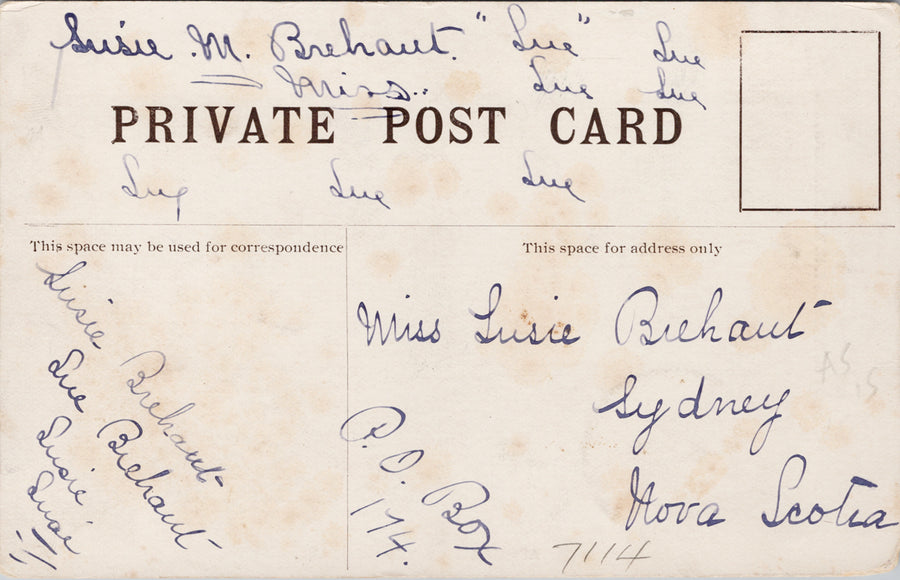 Susie M. Brehaut. "Sue" Sue
Miss. Sue Sue
PRIVATE POST CARD
Sue Sue Sue
This space may be used for correspondence
This space for address only
Susie Brehaut
Sue Brehaut
Susie
Susie
Miss Susie Brehaut
Sydney
Nova Scotia
P.O. Box
174.
7114